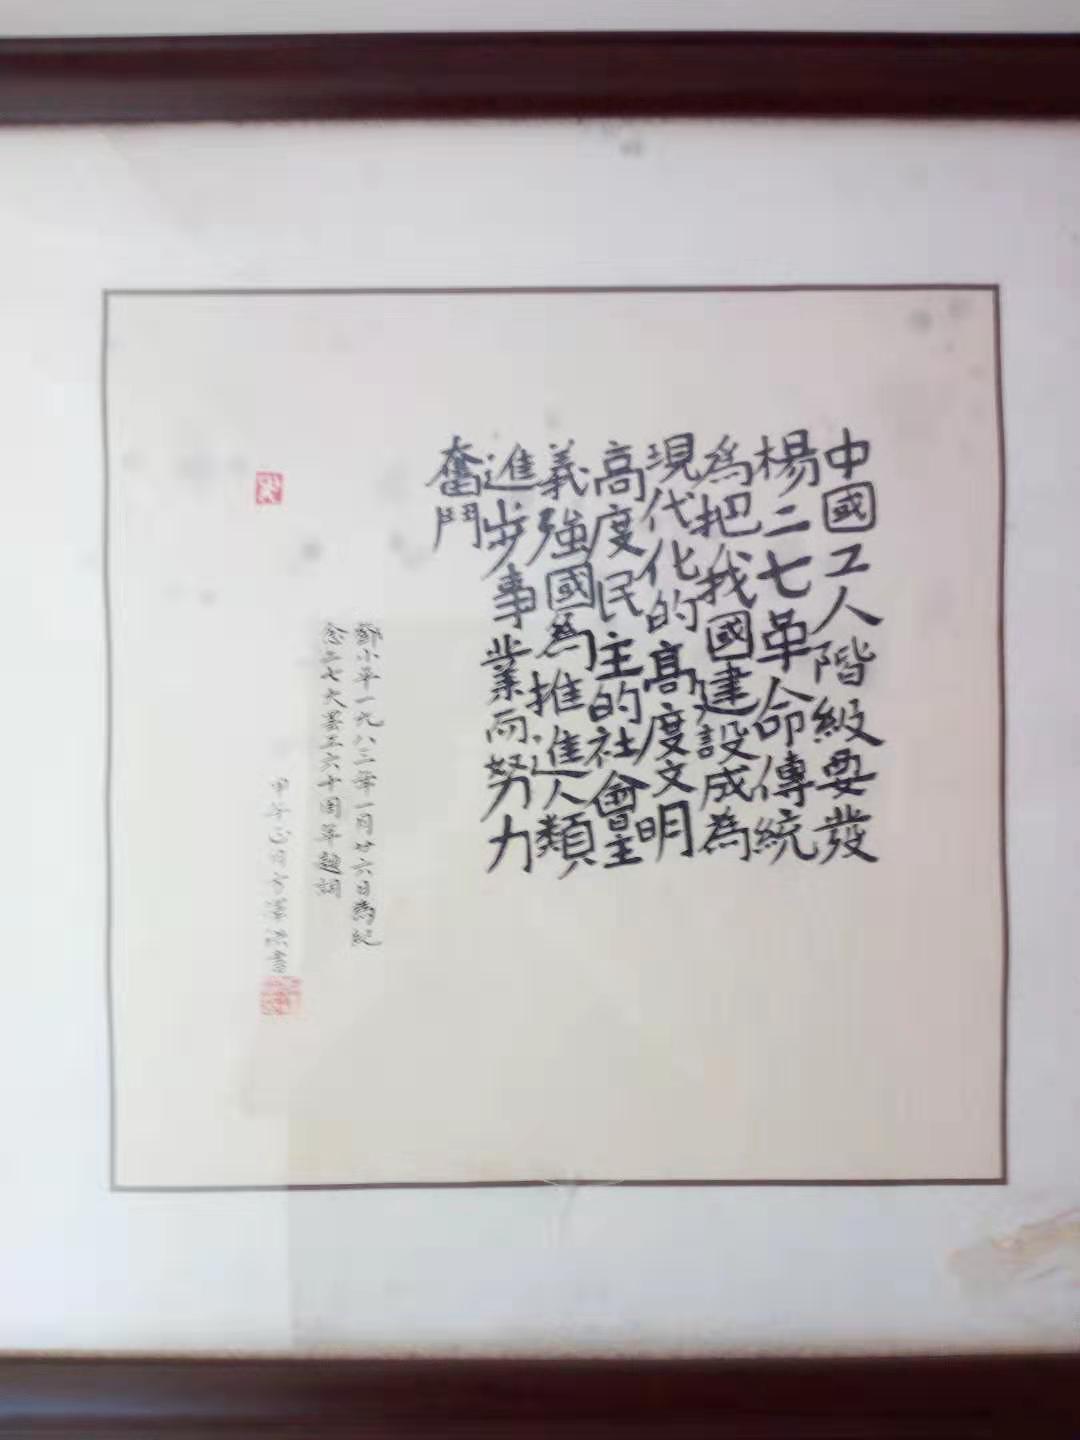 中國工人階級要發
楊二七革命傳統
為把我國建設成為
現代化的高度文明
高度民主的社會主
義強國為推進人類
進步事業而努力
奮鬥
鄧小平一九八三年一月廿六日為紀
念二七大罷工六十周年題詞
甲午正月書